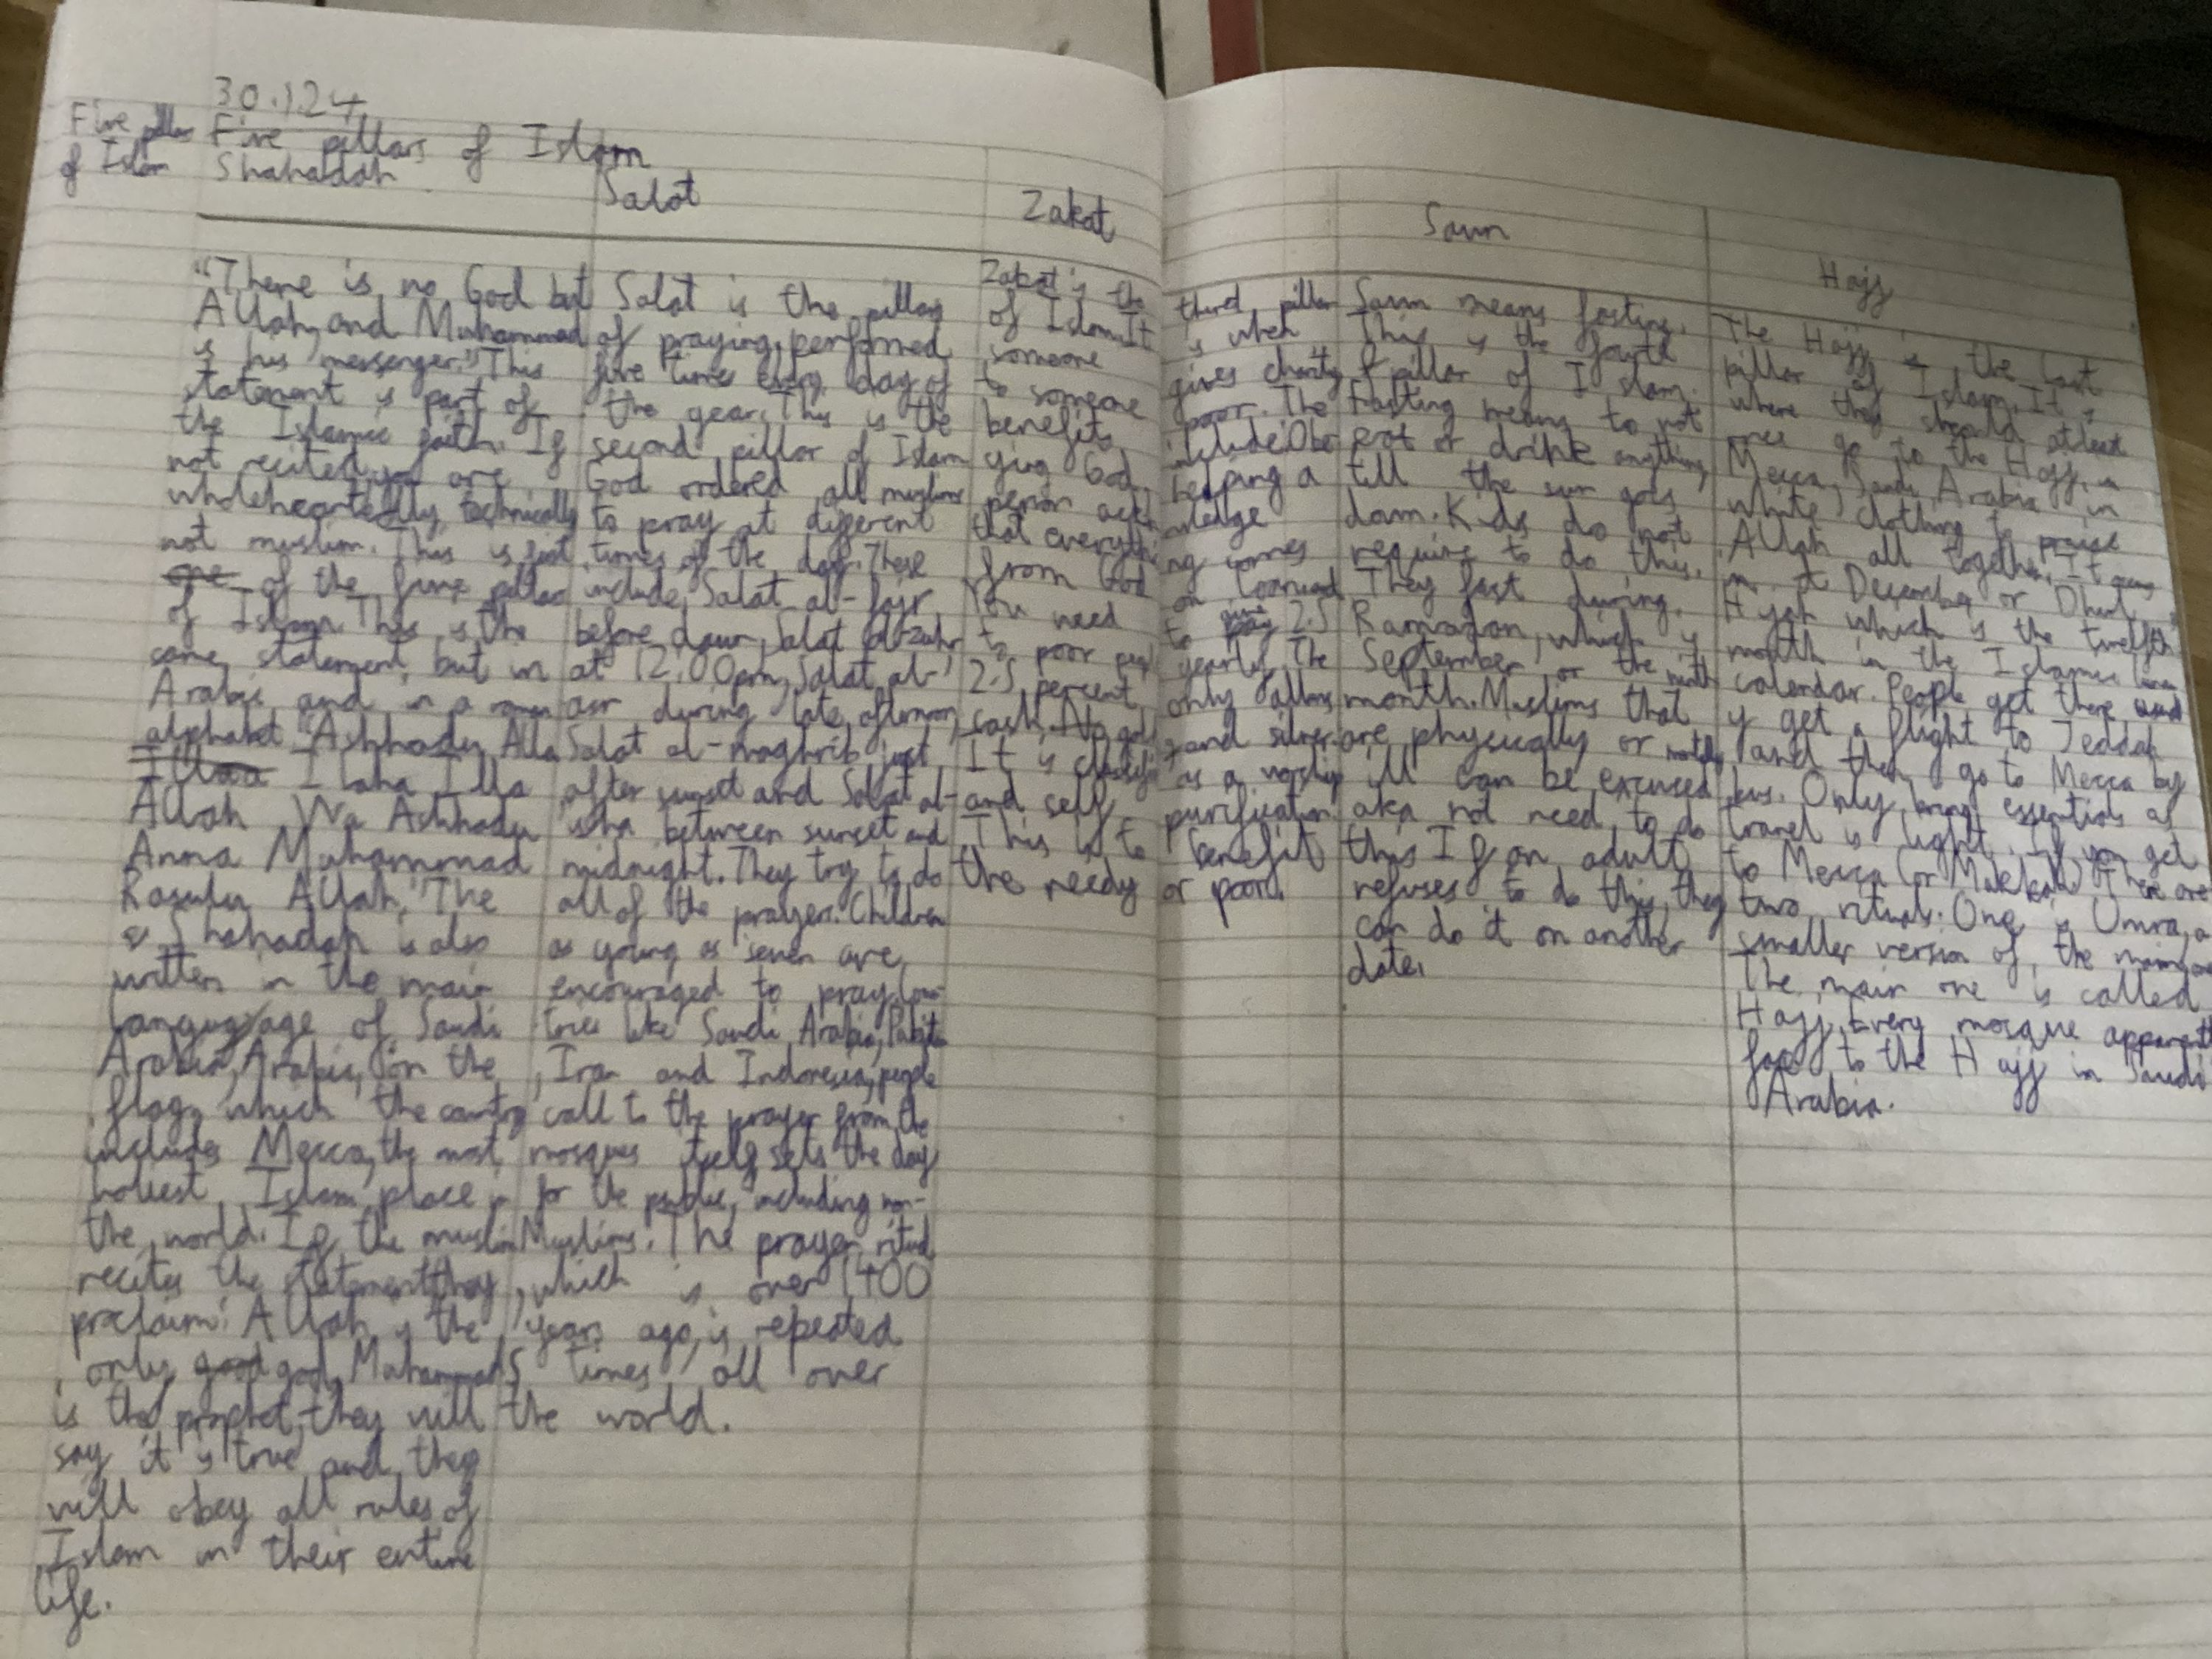 30.1.24
Five pillars
of Islam
Five pillars of Islam
Shahadah
"There is no God but
Allah, and Muhammad
is his messenger." This
statement is part of
the Islamic faith. If
not recited, you are
wholeheartedly, technically
not muslim. This is first
of the five pillars
of Islam. This is the
same statement, but in
Arabic and in a roman
alphabet "Ashhadu Alla
Ilaha Illa
Allah Wa Ashhadu
Anna Muhammad
Rasulu Allah." The
Shahadah is also
written in the main
language of Saudi
Arabia, Arabic, on the
flag, which the country
includes Mecca, the most
holiest Islam place in
the world. If the muslim
recites the statement, they
proclaim: Allah is the
only good god, Muhammad
is the prophet, they will
say it is true and they
will obey all rules of
Islam in their entire
life.
Salat
Salat is the pillar
of praying, performed
five times every day of
the year. This is the
second pillar of Islam
God ordered all muslims
to pray at different
times of the day. These
include, Salat al-fajr
before dawn, Salat al-zuhr
at 12:00pm, Salat al-
asr during late afternoon,
Salat al-maghrib just
after sunset and Salat al-
isha between sunset and
midnight. They try to do
all of the prayers. Children
as young as seven are
encouraged to pray. Coun-
tries like Saudi Arabia, Pakistan
, Iran and Indonesia, people
call to the prayer from the
mosques itself sets the day
for the public, including non-
Muslims. The prayer ritual
, which is over 1400
years ago, is repeated
5 times all over
the world.
Zakat
Zakat is the third pillar
of Islam. It is when
someone gives charity
to someone poor. The
benefits include: Obe
ying God, helping a
person ackn wledge
that everythi ng comes
from God on
You need to give 2.5
to poor yearly. The
2.5 percent only allows
cash. No gold and silver.
It is classified as a worship
and self purification
This is to benefit
the needy or poor.
Sawm
Sawm means fasting.
This is the fourth
pillar of Islam.
Fasting means to not
eat or drink anything
till the sun goes
down. Kids do not
require to do this.
They fast during
Ramadan, which is
September, or the ninth
month. Muslims that
are physically or
ill can be excused
aka not need to do
this. If an adult
refuses to do this, they
can do it on another
date.
Hajj
The Hajj is the last
pillar of Islam. It is
where they should atleast
once go to the Hajj, in
Mecca, Saudi Arabia in
white clothing to praise
Allah all together. It
December or Dhul
Hijah which is the twelfth
month in the Islamic
calendar. People get there
y get a flight to Jeddah
and then go to Mecca by
bus. Only bring essentials as
travel is light. If you get
to Mecca (or Makkah) There are
two rituals. One is Umra, a
smaller version of the main one
The main one is called
Hajj. Every mosque apparent
face to the Hajj in Saudi
Arabia.